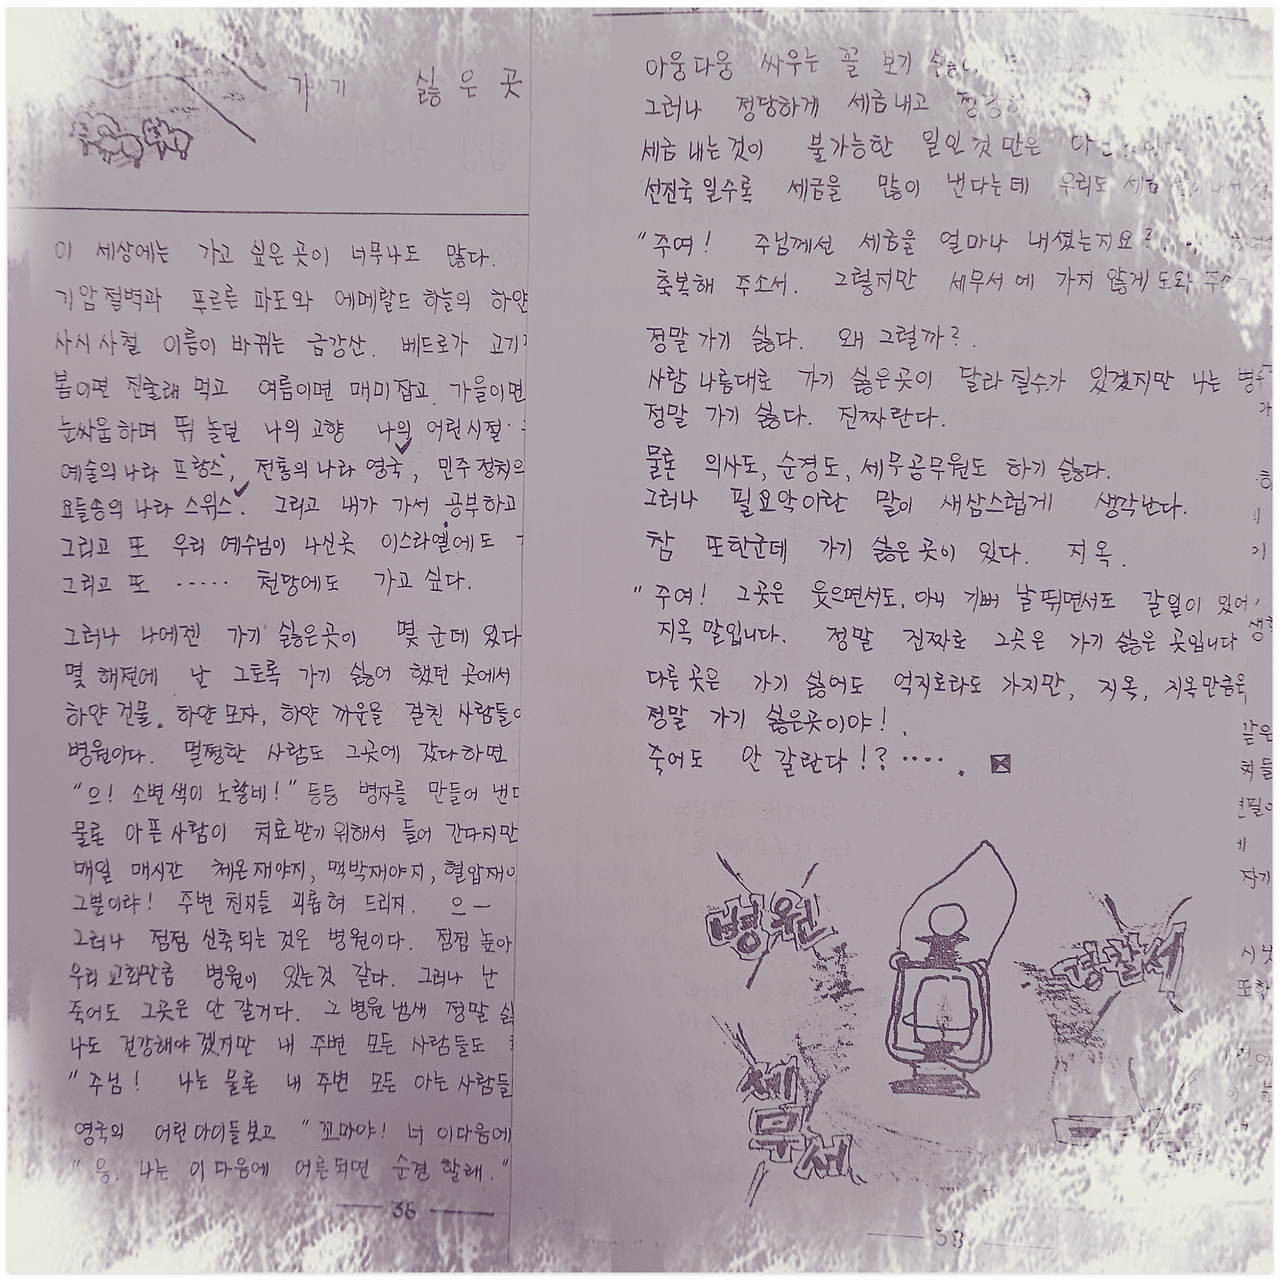 가기 싫은 곳
이 세상에는 가고 싶은 곳이 너무나도 많다.
기암절벽과 푸르른 파도와 에메랄드 하늘의 하얀
사시사철 이름이 바뀌는 금강산. 베드로가 고기
봄이면 진달래 먹고 여름이면 매미잡고 가을이면
눈싸움하며 뛰놀던 나의 고향 나의 어린시절
예술의 나라 프랑스, 전통의 나라 영국, 민주정치의
요들송의 나라 스위스. 그리고 내가 가서 공부하고
그리고 또 우리 예수님이 나신곳 이스라엘에도
그리고 또 ····· 천망에도 가고 싶다.
그러나 나에겐 가기 싫은곳이 몇 군데 있다
몇 해전에 난 그토록 가기 싫어 했던 곳에서
하얀 건물. 하얀 모자, 하얀 까운을 걸친 사람들
병원이다. 멀쩡한 사람도 그곳에 갔다하면
"으! 소변색이 노랗네!" 등등 병자를 만들어 낸다
물론 아픈 사람이 치료받기 위해서 들어 간다지만
매일 매시간 체온재야지, 맥박재야지, 혈압재야
그뿐이랴! 주변 친지들 괴롭혀 드리지. 으ㅡ
그러나 점점 신축되는 것은 병원이다. 점점 높아
우리 교회만큼 병원이 있는것 같다. 그러나 난
죽어도 그곳은 안 갈거다. 그 병원 냄새 정말 싫
나도 건강해야 겠지만 내 주변 모든 사람들도
"주님! 나는 물론 내 주변 모든 아는 사람들
영국의 어린아이들보고 "꼬마야! 너 이다음에
"응. 나는 이 다음에 어른되면 순경 할래."
36
아웅다웅 싸우는 꼴 보기
그러나 정당하게 세금내고
세금 내는것이 불가능한 일인것 만은
선진국일수록 세금을 많이 낸다는데 우리도 세금
"주여! 주님께선 세금을 얼마나 내셨는지요?
축복해 주소서. 그렇지만 세무서에 가지 않게 도와 주소
정말 가기 싫다. 왜 그럴까?
사람 나름대로 가기 싫은곳이 달라 질수가 있겠지만 나는
정말 가기 싫다. 진짜란다.
물론 의사도, 순경도, 세무공무원도 하기 싫다.
그러나 필요악이란 말이 새삼스럽게 생각난다.
참 또한군데 가기 싫은곳이 있다. 지옥.
"주여! 그곳은 웃으면서도, 아니 기뻐 날뛰면서도 갈일이 있어
지옥 말입니다. 정말 진짜로 그곳은 가기 싫은 곳입니다
다른 곳은 가기 싫어도 억지로라도 가지만, 지옥, 지옥만큼은
정말 가기 싫은곳이야!
죽어도 안 갈란다!? ····.
병원
경찰서
세무서
38